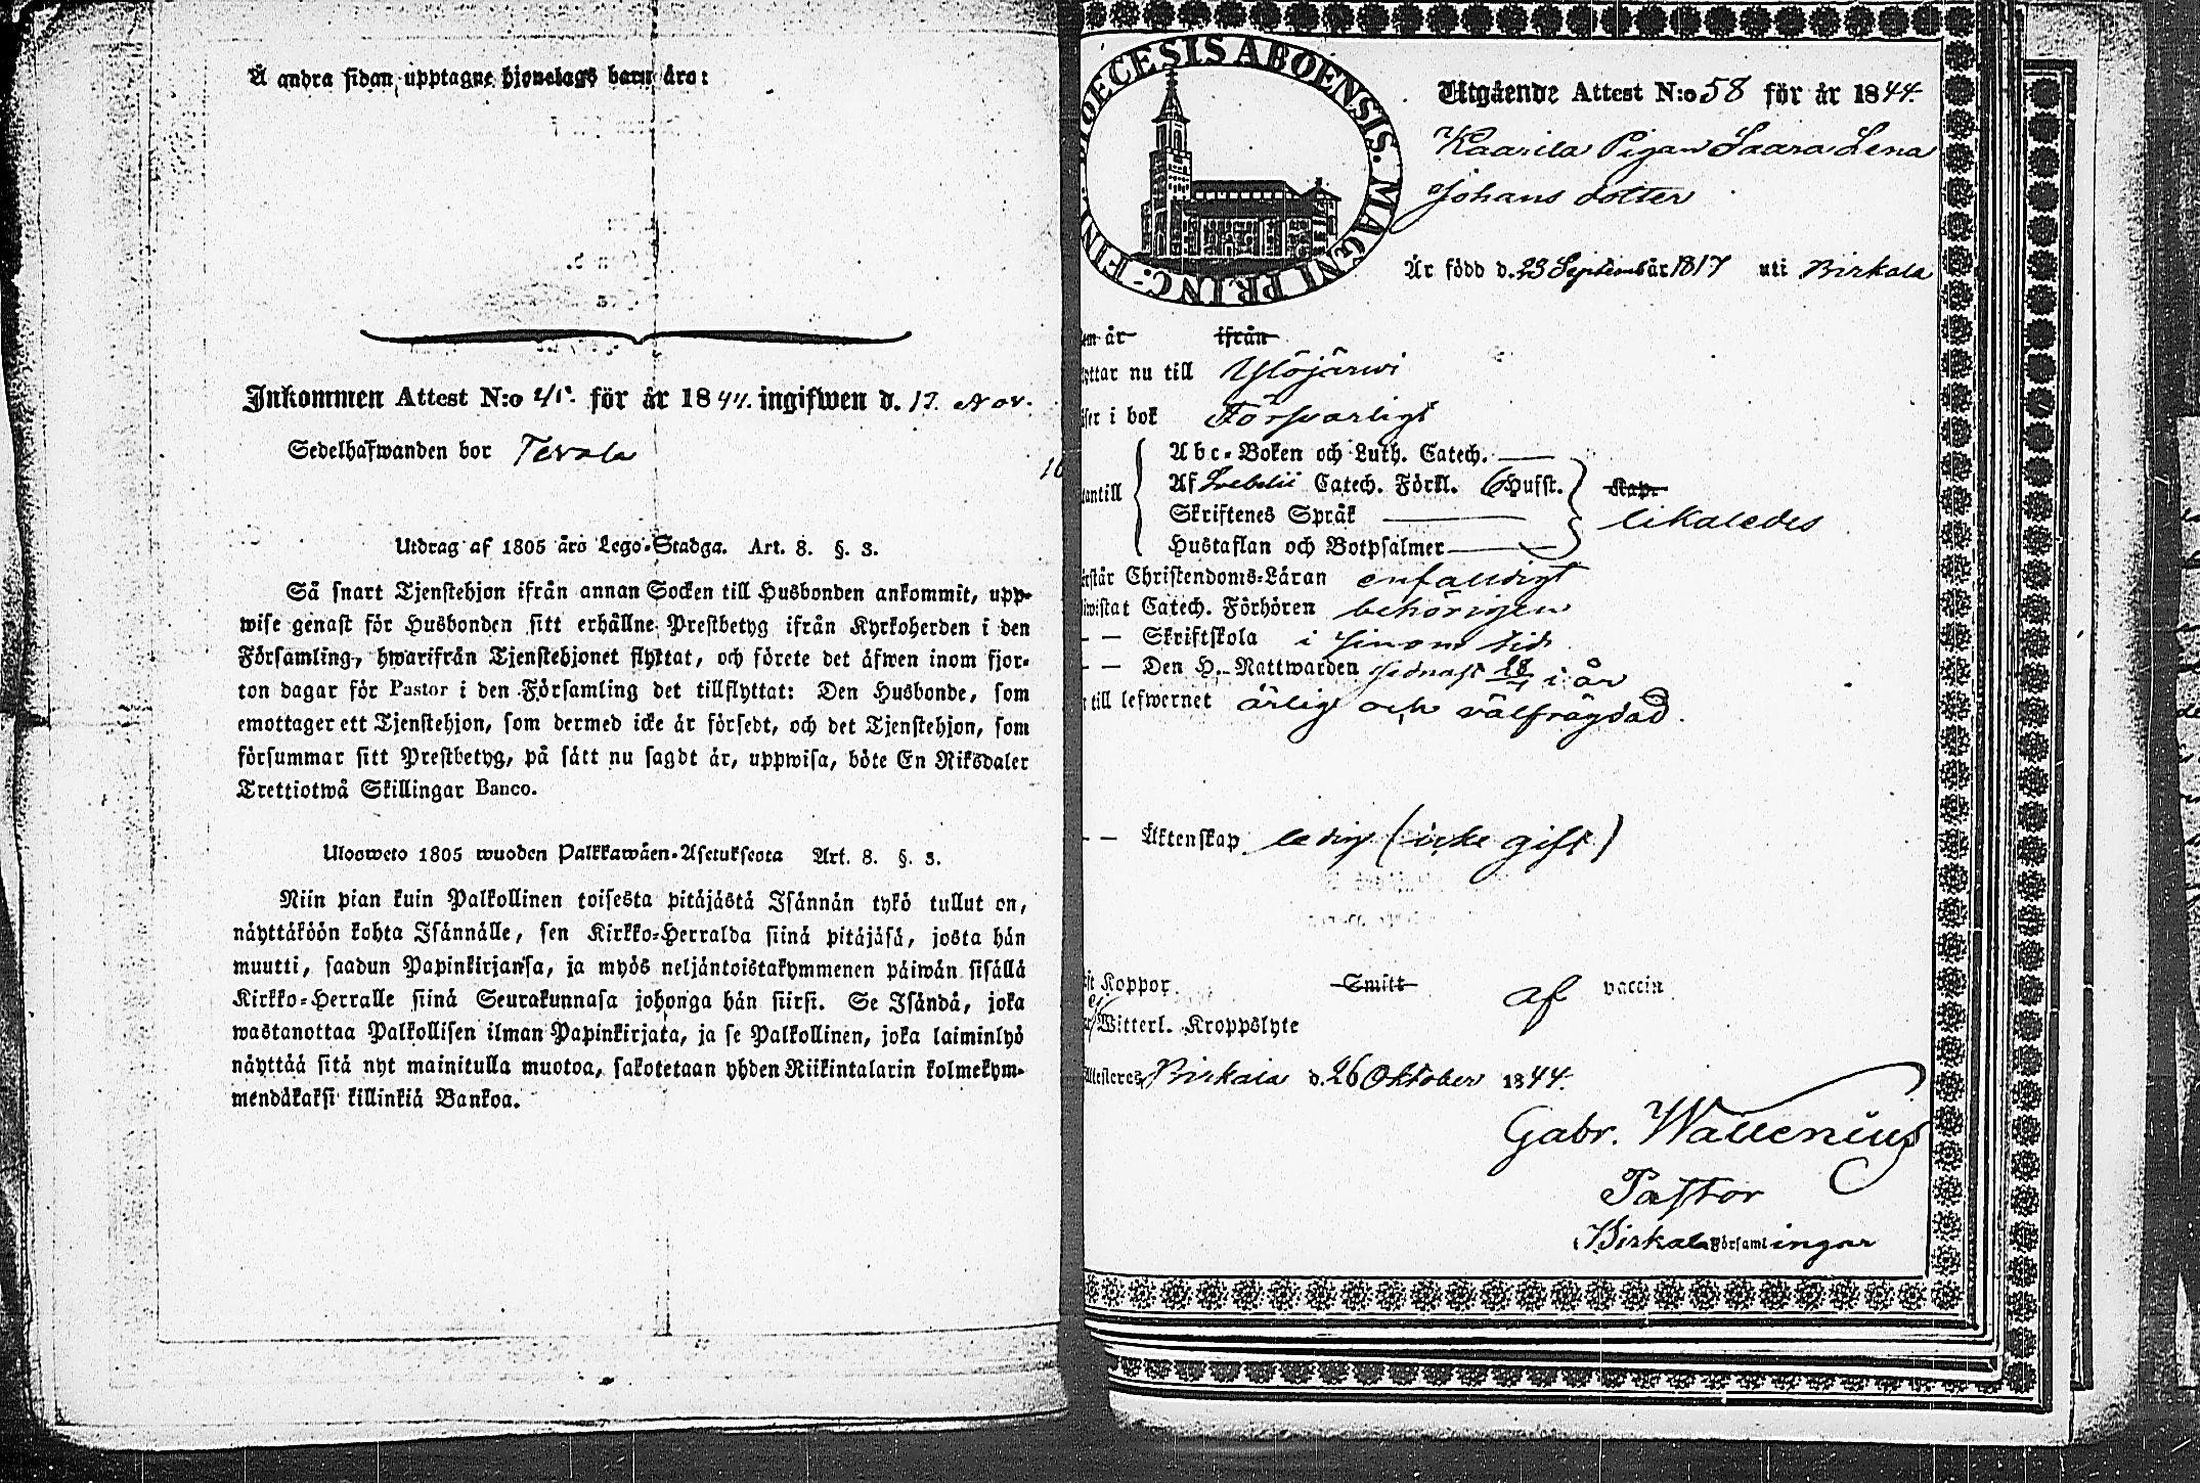 Å andra sidan upptagne hjonelags barn äro:
Inkommen Attest N:o 45. för år 1844. ingifwen d. 17. Nov.
Sedelhafwanden bor Terala
Utdrag af 1805 års Lego-Stadga. Art. 8. §. 3.
Så snart Tjenstehjon ifrån annan Socken till Husbonden ankommit, upp-
wise genast för Husbonden sitt erhållne Prestbetyg ifrån Kyrkoherden i den
Församling, hwarifrån Tjenstehjonet flyttat, och förete det äfwen inom fjor-
ton dagar för Pastor i den Församling det tillflyttat: Den Husbonde, som
emottager ett Tjenstehjon, som dermed icke är försedt, och det Tjenstehjon, som
försummar sitt Prestbetyg, på sätt nu sagdt är, uppwisa, böte En Riksdaler
Trettiotwå Skillingar Banco.
Uloosweto 1805 wuoden Palkkawäen-Asetuksesta Art. 8. §. 3.
Niin pian kuin Palkollinen toisesta pitäjästä Isännän tykö tullut on,
näyttäköön kohta Isännälle, sen Kirkko-Herralda siinä pitäjäsä, josta hän
muutti, saadun Papinkirjansa, ja myös neljäntoistakymmenen päiwän sisällä
Kirkko-Herralle siinä Seurakunnasa johonga hän siirsi. Se Isändä, joka
wastanottaa Palkollisen ilman Papinkirjata, ja se Palkollinen, joka laiminlyö
näyttää sitä nyt mainitulla muotoa, sakotetaan yhden Riikintalarin kolmekym-
mendäkaksi killinkiä Bankoa.
DIOECESIS ABOENSIS. MAGNI PRINC: FIN
Utgående Attest N:o 58 för år 1844.
Kaarila Pigan Saara Lena
Johans dotter
Är född d. 23 September år 1817 uti Birkala
em år ifrån
yttar nu till Ylöjärwi
äser i bok Försvarligt
Abc-Boken och Luth. Catech.
antill Af Svebelii Catech. Förkl. 6 Hufst. Kap.
Skriftenes Språk likaledes
Hustaflan och Botpsalmer
rstår Christendoms-Läran enfaldigt
wistat Catech. Förhören behörigen
— — Skriftskola i sinom tid
— — Den H. Nattwarden sednast i år
till lefwernet ärlig och välfrägdad.
— — Äktenskap ledig (icke gift)
Koppor Smitt af vaccin
Witterl. Kroppslyte
Attesteres, Birkala d. 26 Oktober 1844.
Gabr. Wallenius
Pastor
Birkala Församlingar